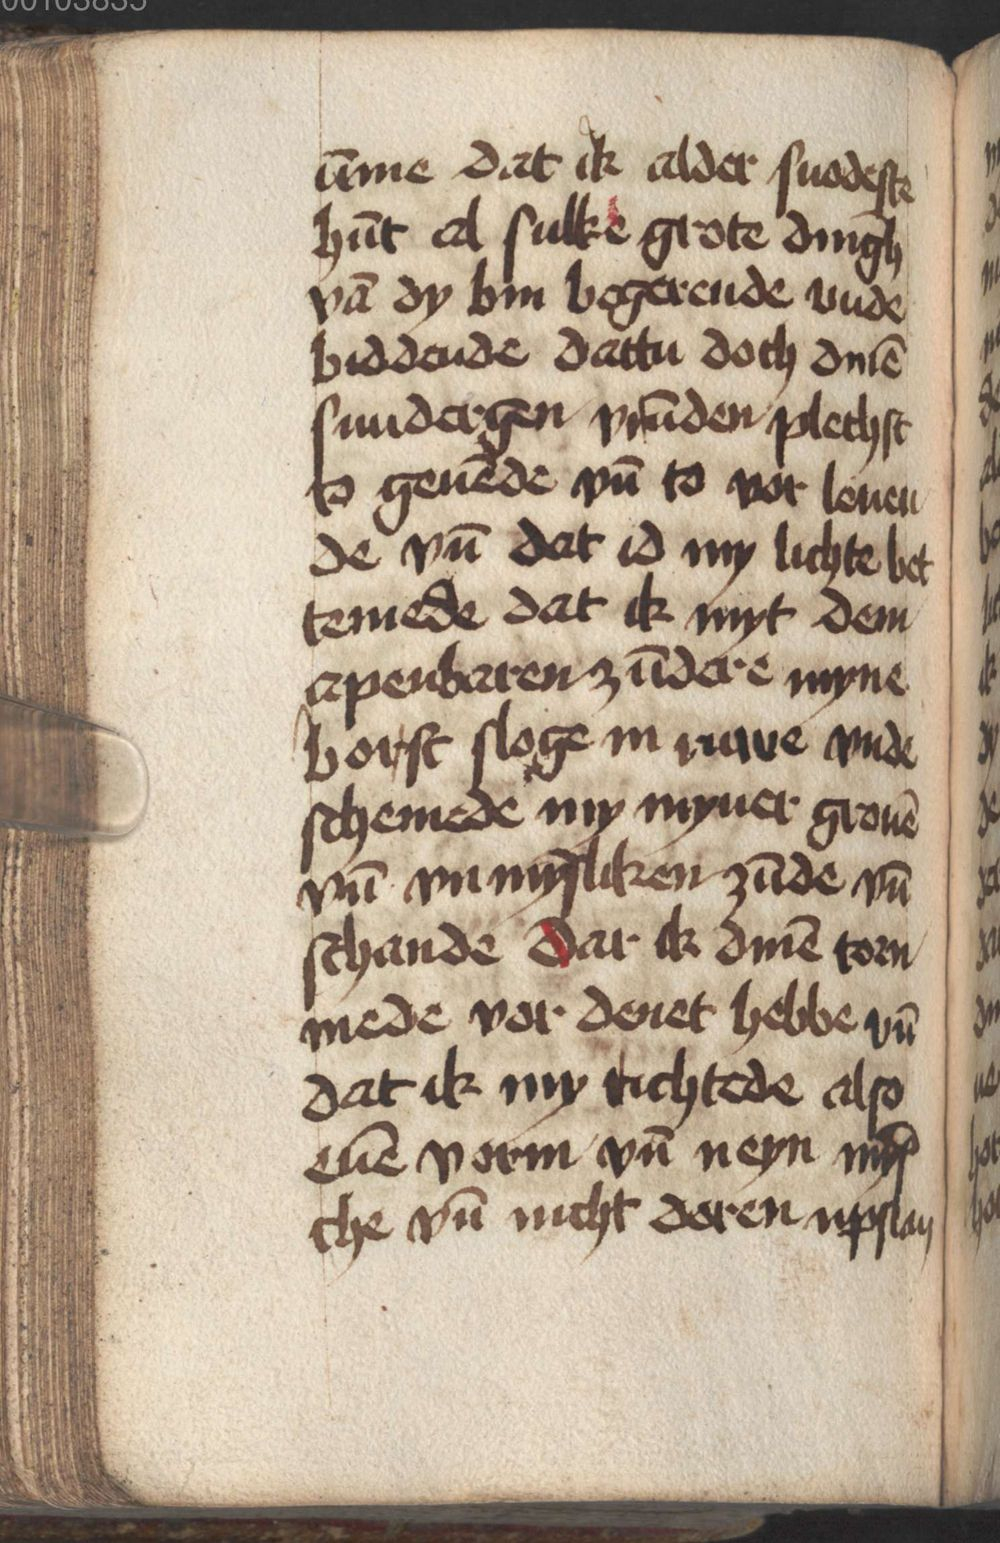 00103835
ūme dat ik alder snodeste
hūt al sulke grote dingh
vā dy bin begerende vnde
biddende dattu doch dinē
sundergen vrūden plechst
to geuēde vn̄ to vor leuen
de vn̄ dat id my lichte bet
temede dat ik myt dem
apenbaren zūdere myne
borst sloge in ruwe vnde
schemede my myner grouē
vn̄ vnmȳsliken zūde vn̄
schande Dar ik dinē torn
mede vor denet hebbe vn̄
dat ik my richtede also
euē vorm vn̄ neyn mȳs
che vn̄ nicht doren upslan